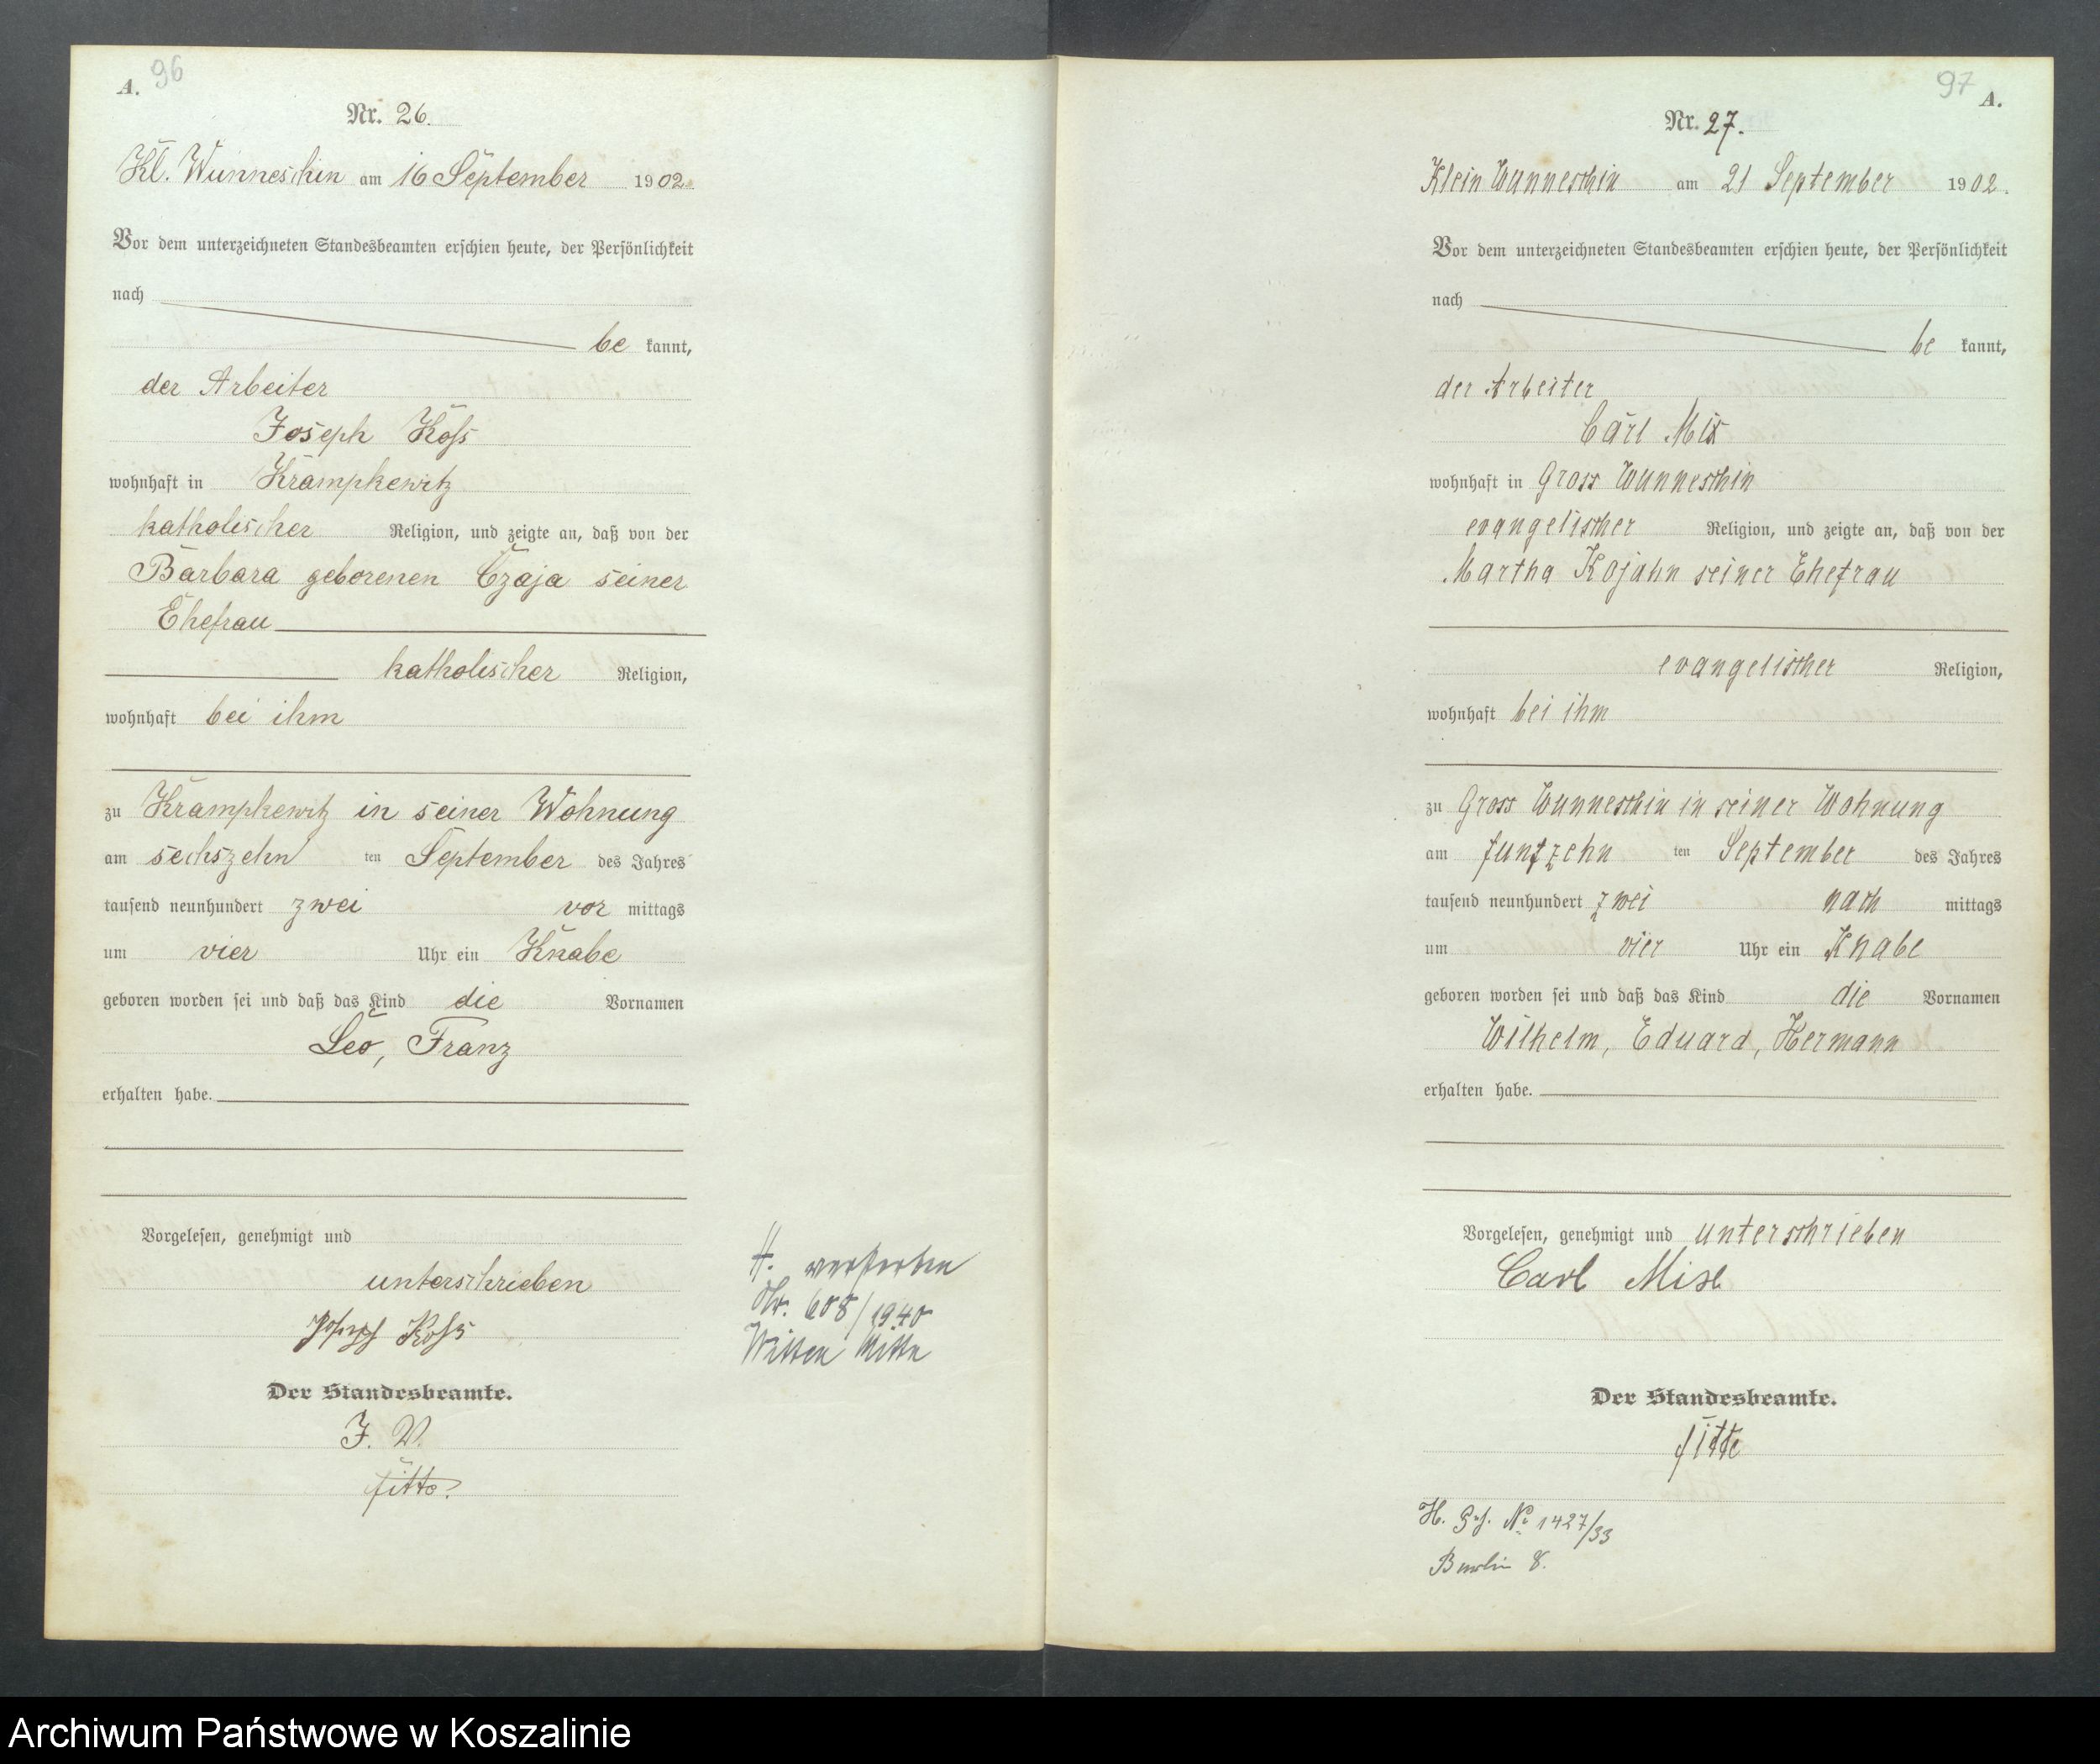 96
A.
Nr. 26.
Kl. Wunneschin am 16 September 1902.
Vor dem unterzeichneten Standesbeamten erschien heute, der Persönlichkeit
nach
be kannt,
der Arbeiter
Joseph Koss
wohnhaft in Krampkewitz
katholischer Religion, und zeigte an, daß von der
Barbara geborenen Czaja seiner
Ehefrau
katholischer Religion,
wohnhaft bei ihm
zu Krampkewitz in seiner Wohnung
am sechszehn ten September des Jahres
tausend neunhundert zwei vor mittags
um vier Uhr ein Knabe
geboren worden sei und daß das Kind die Vornamen
Leo, Franz
erhalten habe.
Vorgelesen, genehmigt und
unterschrieben
Joseph Koss
Der Standesbeamte.
J. V.
Fitte.
H. verstorben
Nr. 608/1940
Witten Mitte
97
A.
Nr. 27.
Klein Wunneschin am 21 September 1902.
Vor dem unterzeichneten Standesbeamten erschien heute, der Persönlichkeit
nach
be kannt,
der Arbeiter
Carl Mix
wohnhaft in Gross Wunneschin
evangelischer Religion, und zeigte an, daß von der
Martha Kojahn seiner Ehefrau
evangelischer Religion,
wohnhaft bei ihm
zu Gross Wunneschin in seiner Wohnung
am funfzehn ten September des Jahres
tausend neunhundert zwei nach mittags
um vier Uhr ein Knabe
geboren worden sei und daß das Kind die Vornamen
Wilhelm, Eduard, Hermann
erhalten habe.
Vorgelesen, genehmigt und unterschrieben
Carl Mix
Der Standesbeamte.
Fitte
H. No 1427/33
Berlin 8.
Archiwum Państwowe w Koszalinie